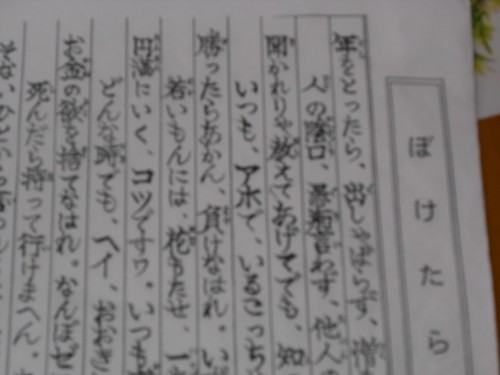 ぼけたら
年をとったら、出しゃばらず、憎
人の陰口、愚痴言わず、他人の
聞かれりゃ教えてあげてでも、知
いつも、アホで、いるこっち
勝ったらあかん、負けなはれ。い
若いもんには、花もたせ、一
円満にいく、コツですワ。いつも
どんな時でも、ヘイ、おおき
お金の欲を捨てなはれ。なんぼゼ
死んだら持って行けまへん。
そない